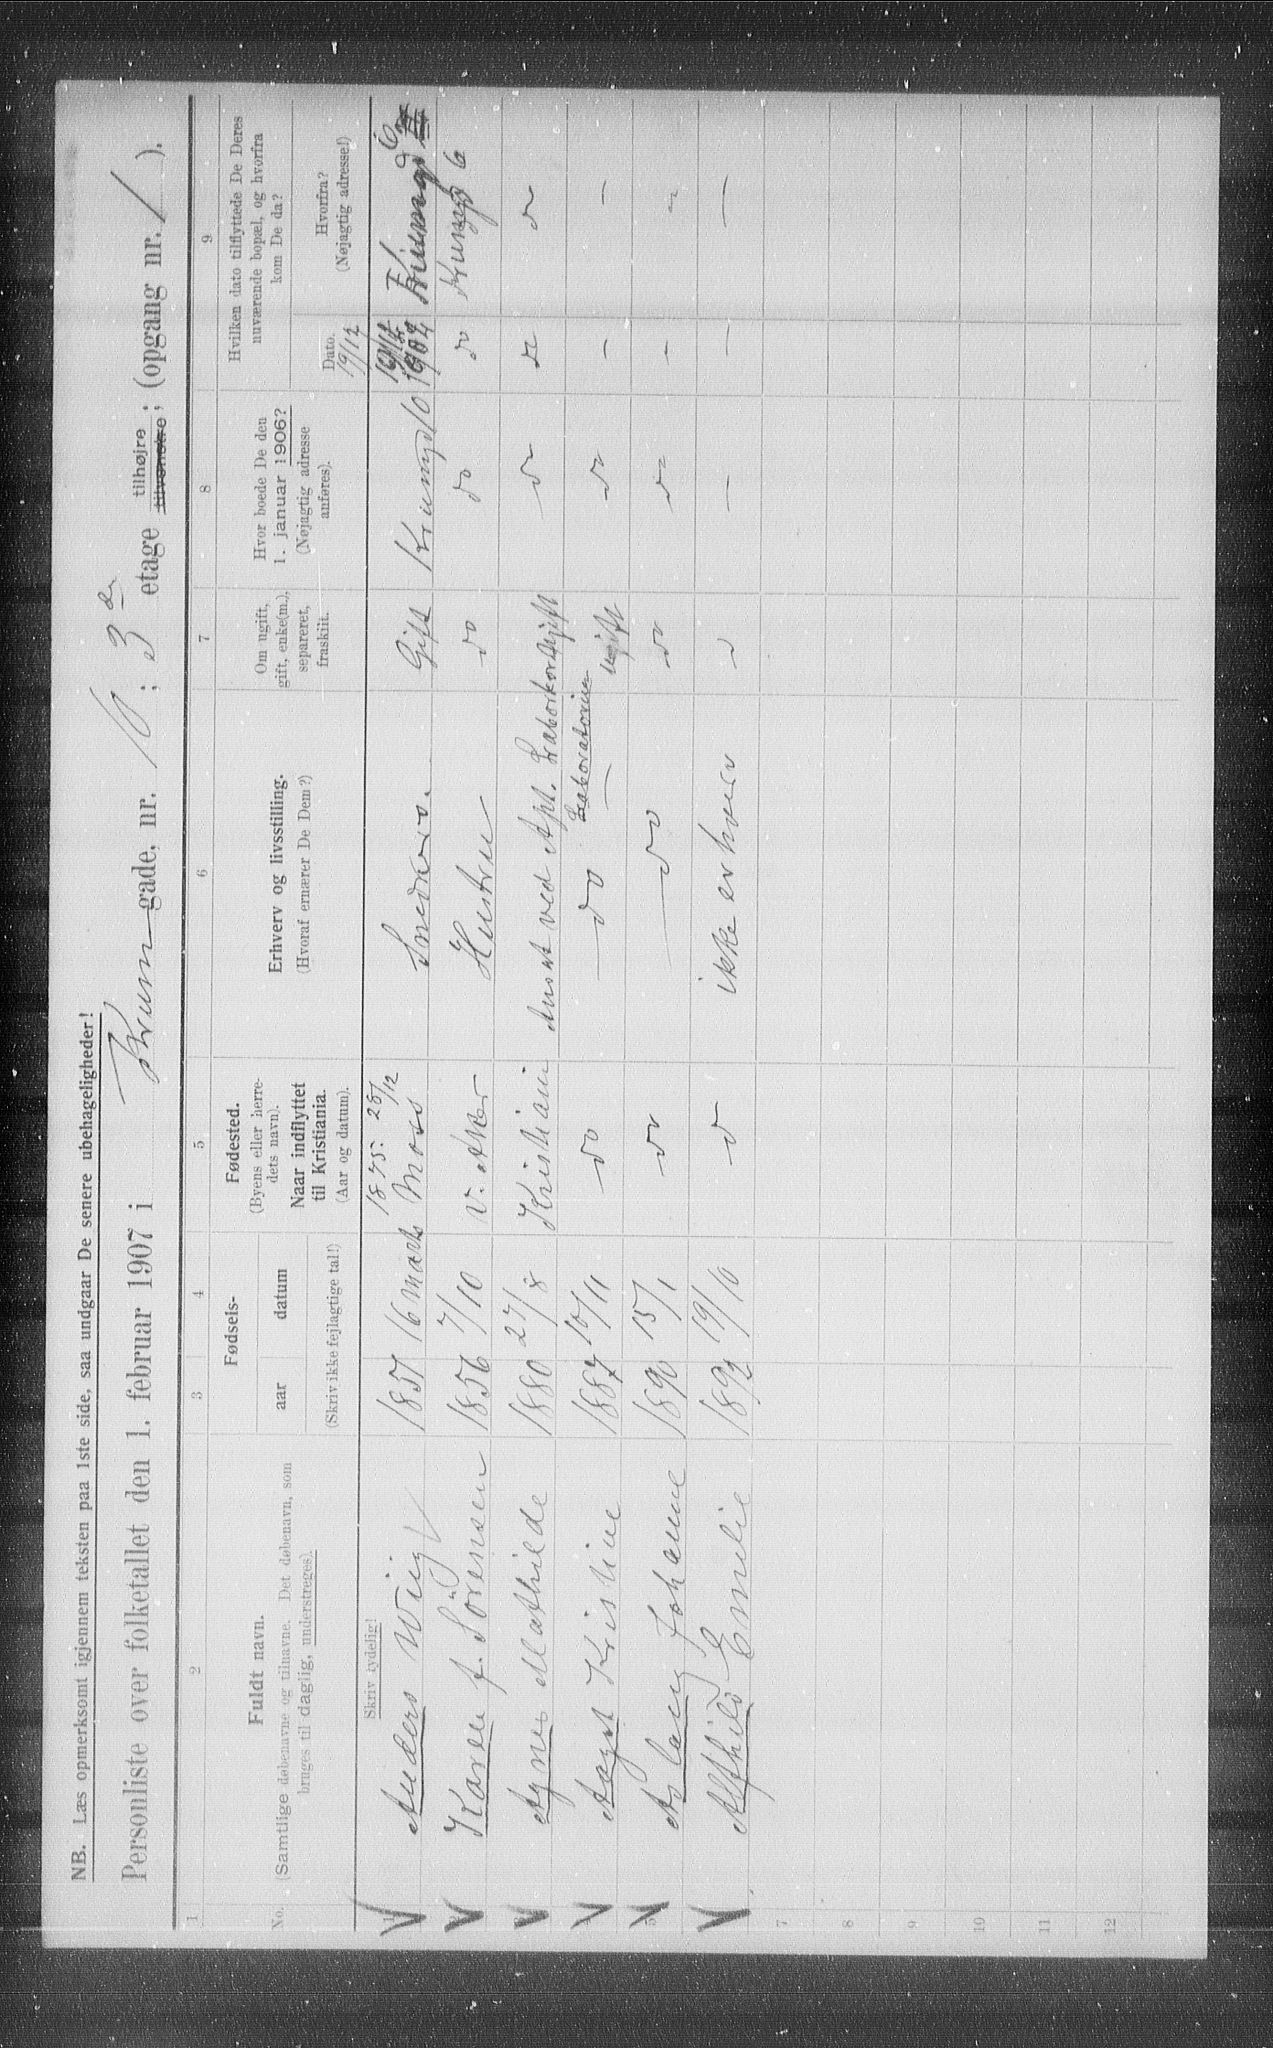 NB. Læs opmerksomt igjennem teksten paa 1ste side, saa undgaar De senere ubehageligheder!
Personliste over folketallet den 1. februar 1907 i Krum gade, nr. 10; 3 de etage tilhøjre tilvenstre; (opgang nr. 1).
1 2 3 4 5 6 7 8 9
No.
Fuldt navn.
(Samtlige døbenavne og tilnavne. Det døbenavn, som
bruges til daglig, understreges).
Skriv tydelig!
Fødsels-
aar datum
(Skriv ikke fejlagtige tal!)
Fødested.
(Byens eller herre-
dets navn).
Naar indflyttet
til Kristiania.
(Aar og datum).
Erhverv og livsstilling.
(Hvoraf ernærer De Dem?)
Om ugift,
gift, enke(m.),
separeret,
fraskilt.
Hvor boede De den
1. januar 1906?
(Nøjagtig adresse
anføres).
Hvilken dato tilflyttede De Deres
nuværende bopæl, og hvorfra
kom De da?
Dato.
19/12
Hvorfra?
(Nøjagtig adresse!)
1875. 28/12
1 Anders Wiig 1851 16 marts Moss Snedker. Gift Krumgd 10 Krumgd 6
2 Karen f. Sörensen 1856 7/10 V. Aker Hustru do do do Krumgd 6
3 Agnes Mathilde 1880 27/8 Kristiania Ansat ved Apt. Ugift do do do
Laboratorium
4 Aagot Kristine 1887 do do — Ugift do — —
5 Aslaug Johanne 1890 15/1 do do do do — "
6 Alfhild Emilie 19/10 do ikke erhverv do — — —
7
8
9
10
11
12